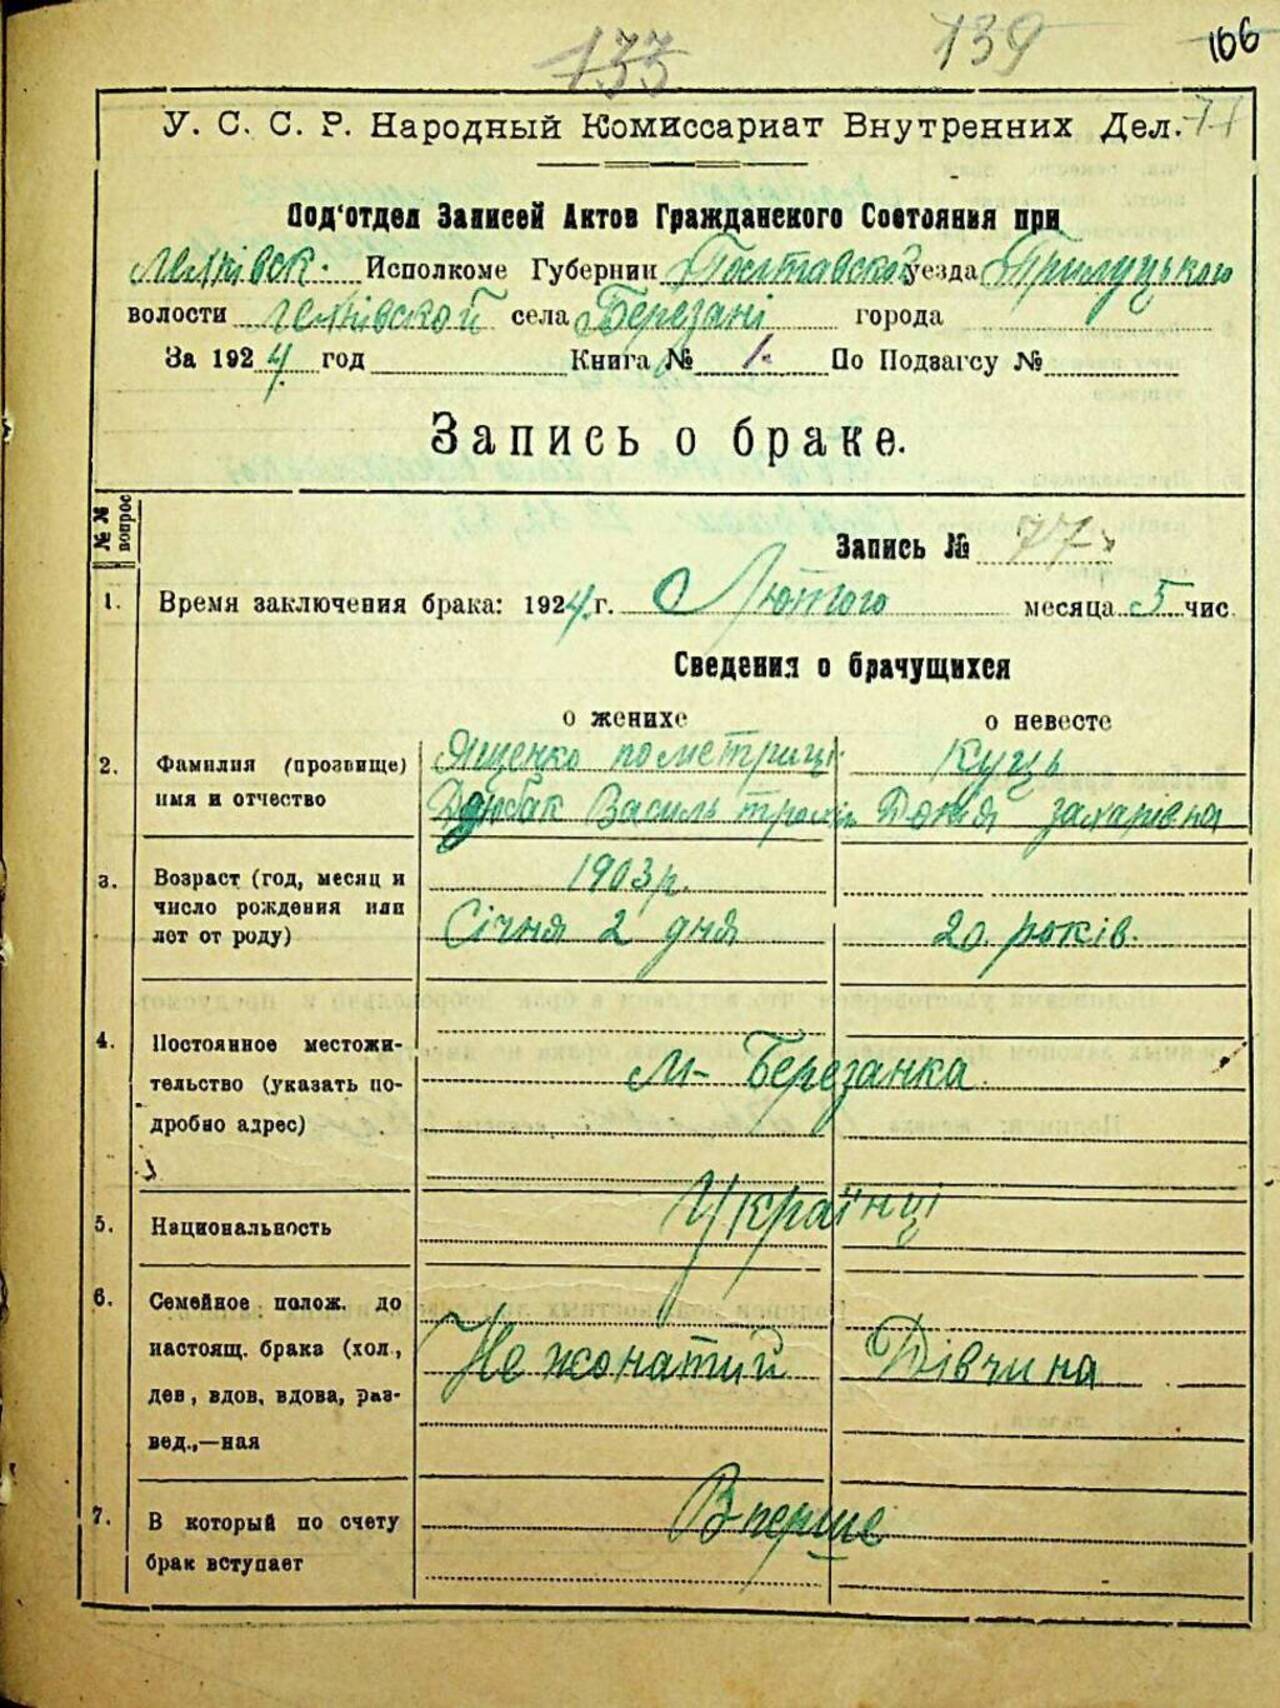 133 139 166
У. С. С. Р. Народный Комиссариат Внутренних Дел. 71
Под'отдел Записей Актов Гражданского Состояния при
Исполкоме Губернии Полтавской уезда Прилуцького
волости села Березані города
За 1924 год Книга № 1. По Подзагсу №
Запись о браке.
№№ вопрос
Запись № 77
1. Время заключения брака: 1924 г. Лютого месяца 5 чис.
Сведения о брачущихся
о женихе о невесте
2. Фамилия (прозвище) Ященко по метриці Куць
имя и отчество Дзюбак Василь Трохім Докія Захарівна
3. Возраст (год, месяц и 1903 р.
число рождения или
лет от роду) Січня 2 дня 20 років.
4. Постоянное местожи-
тельство (указать по- м- Березанка
дробно адрес)
5. Национальность Українці
6. Семейное полож. до
настоящ. брака (хол., Не жонатий Дівчина
дев, вдов, вдова, раз-
вед.,—ная
7. В который по счету Вперше
брак вступает